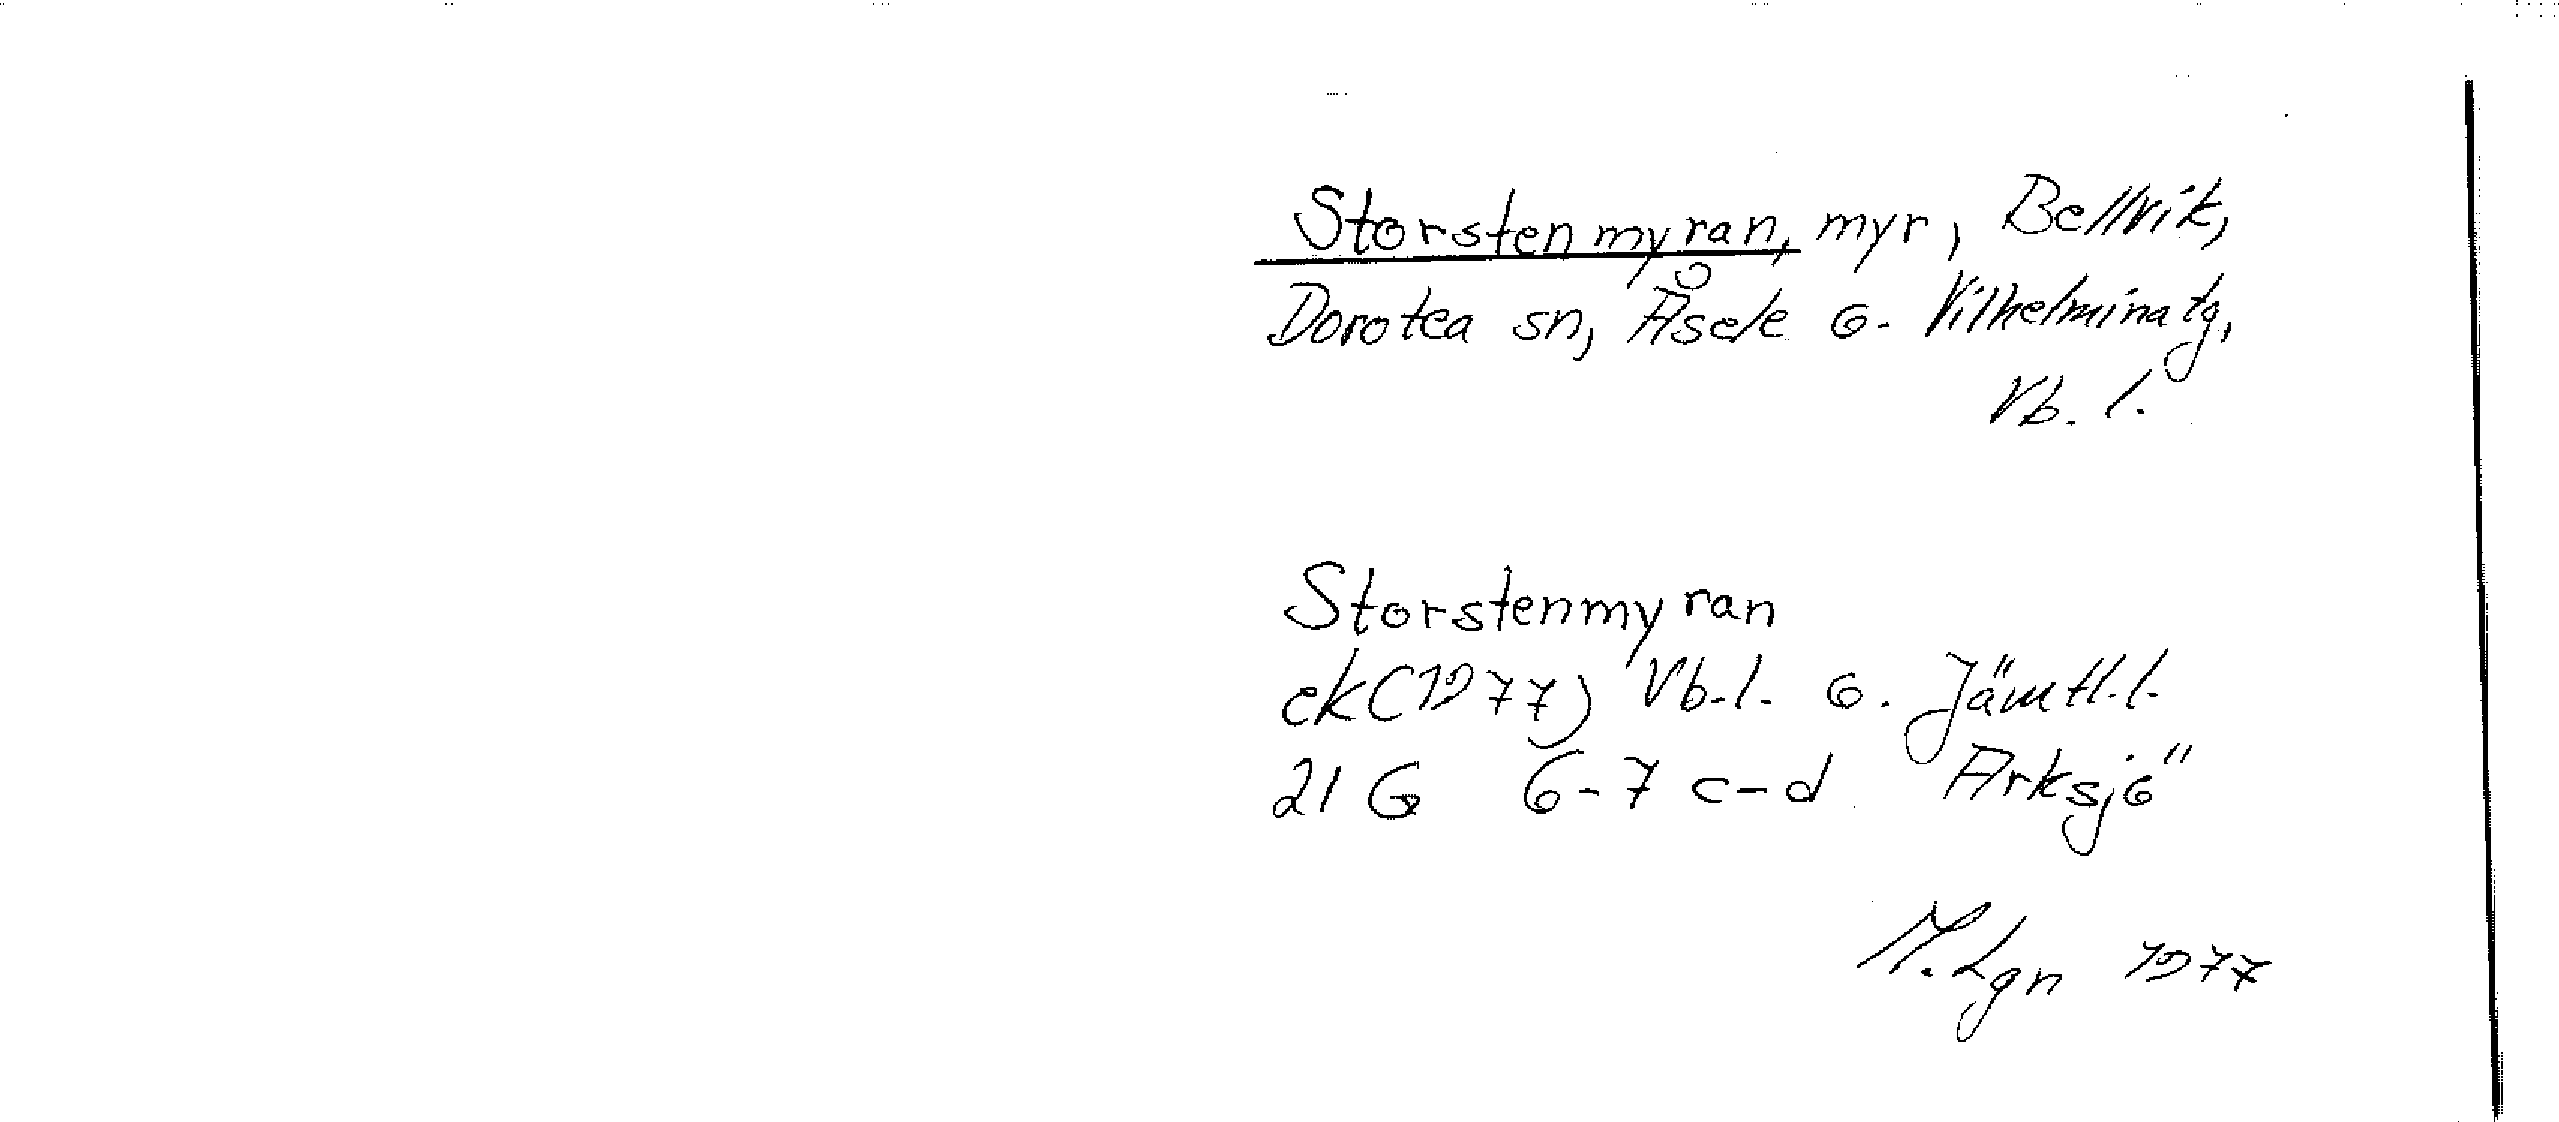 Storstenmyran, myr, Bellvik,
Dorotea sn, Åsele o. Vilhelmina tg,
Vb. l.
Storstenmyran
ek (1977) Vb.l. o. Jämtl.l.
21 G 6-7 c-d Arksjö
M. Lgn 1977